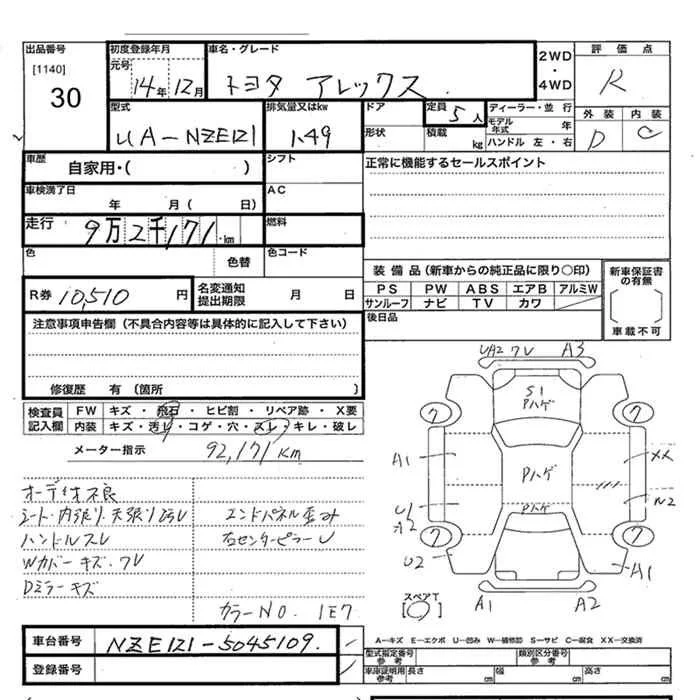 出品番号
[1140]
30
初度登録年月
元号
14年12月
車名・グレード
トヨタ アレックス
2WD
・
4WD
評価点
R
外装 内装
D C
型式
UA-NZE121
排気量又はkw
1.49
ドア
形状
定員
5人
積載
kg
ディーラー・並行
モデル年式 年
ハンドル 左・右
車歴
自家用・( )
シフト
正常に機能するセールスポイント
車検満了日
年 月( 日)
AC
走行
9万2千171・km
燃料
色
色替
色コード
装備品(新車からの純正品に限り○印)
PS PW ABS エアB アルミW
サンルーフ ナビ TV カワ
新車保証書の有無
車載不可
R券 10,510 円
名変通知
提出期限
月 日
後日品
注意事項申告欄(不具合内容等は具体的に記入して下さい)
修復歴 有(箇所 )
検査員
記入欄
FW キズ・飛石・ヒビ割・リペア跡・X要
内装 キズ・汚レ・コゲ・穴・スレ・キレ・破レ
メーター指示 92,171Km
オーディオ不良
シート・内張り・天張り汚レ
ハンドルスレ
Wカバーキズ・ワレ
Dミラーキズ
エンドパネル歪み
右センターピラーU
カラーNO. 1E7
UA2 ワレ A3
S1
Pハゲ
7 7
A1
Pハゲ
XX
U1
A2
Pハゲ
N2
7 7
U2
A1
スペアT
A1 A2
A-キズ E-エクボ U-凹み W-補修跡 S-サビ C-腐食 XX-交換済
車台番号 NZE121-5045109.
登録番号
型式指定番号
参考
類別区分番号
参考
車庫証明用
参考
長さ cm 幅 cm 高さ cm